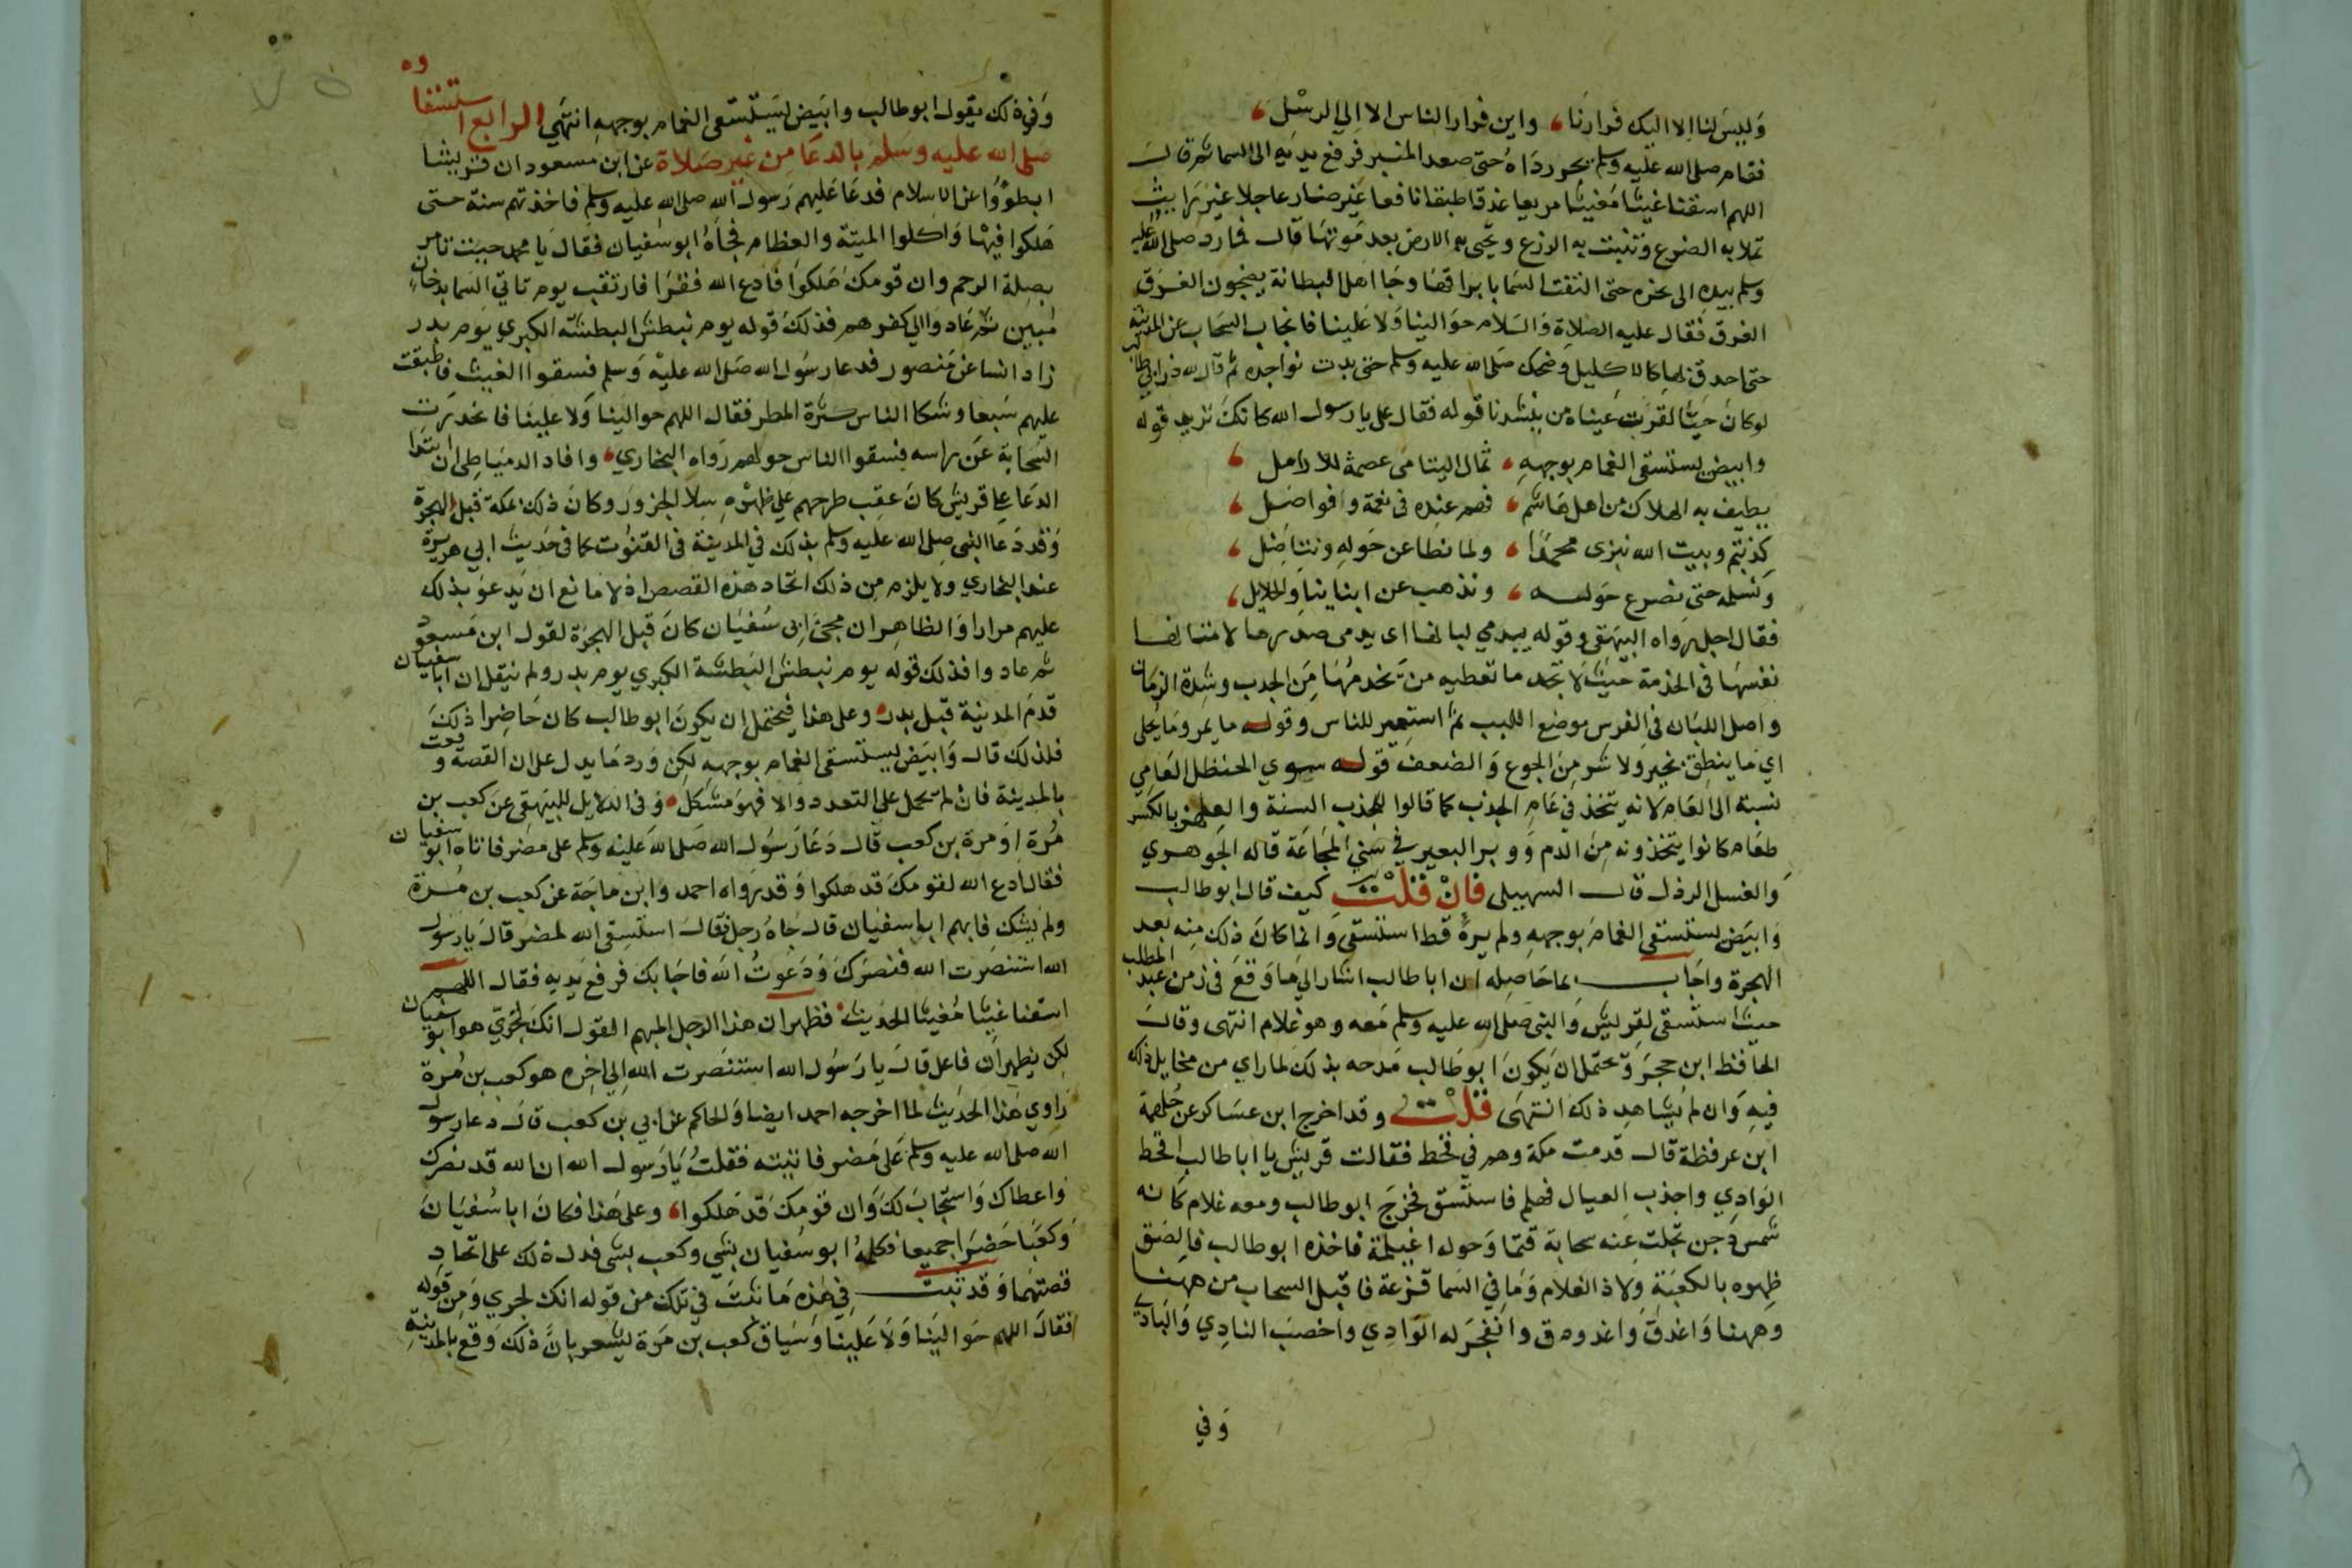 وَليسَ لنا الا اليك فرارنا، واين فرار الناس الا الي الرسْل،
فقام صلى الله عليه وسلم يجر رداه حتى صعد المنبر فرفع يديه الى السما ثم قال
اللهم اسقنا غيثا مغيثا مريعا غدقا طبقا نافعا غير ضار عاجلا غير رايث
تملا به الضرع وتنبت به الزرع وتحيى به الارض بعد موتها قال فما رد صلى الله عليه
وسلم يديه الى نحره حتى التقت السما بابراقها وجا اهل البطانة يضجون الغرق
الغرق فقال عليه الصلاة والسلام حوالينا ولا علينا فانجاب السحاب عن المدينة
حتى احدق بها كالاكليل وضحك صلى الله عليه وسلم حتى بدت نواجذه ثم قال لله در ابي طالب
لو كان حيا لقرت عيناه من ينشدنا قوله فقال على يا رسول الله كانك تريد قوله
وابيض يستسقى الغمام بوجهه، ثمال اليتامى عصمة للارامل،
يطيف به الهلاك من اهل هاشم، فهم عنده فى نعمة وافواضل،
كذبتم وبيت الله نبزى محمدا، ولما نطاعن حوله ونناضل،
ونسلمه حتى نصرع حوله، ونذهب عن ابناينا والحلايل،
فقال اجل رواه البيهقى وقوله يدمي لبانها اى يدمى صدرها لامتهانها
نفسها فى الخدمة حيث لا تجد ما تعطيه من يخدمها من الجدب وشدة الزمان
واصل اللبان فى الفرس موضع اللبب ثم استعير للناس وقوله ما يمر وما يحلى
اي ما ينطق بخير ولا شر من الجوع والضعف قوله سوي الحنظل العامي
نسبة الى العام لانه يتخذ في عام الجدب كما قالوا للجدب السنة والعلهز بالكسر
طعام كانوا يتخذونه من الدم ووبر البعير في سني المجاعة قاله الجوهري
والغسل الرذل قال السهيلى فان قلت كيف قال ابو طالب
وابيض يستسقى الغمام بوجهه ولم يره قط استسقى وانما كان ذلك منه بعد
الهجرة واجاب بما حاصله ان ابا طالب اشار الى ما وقع فى زمن عبد المطلب
حيث استسقى لقريش والنبى صلى الله عليه وسلم معه وهو غلام انتهى وقال
الحافظ ابن حجر ويحتمل ان يكون ابو طالب مدحه بذلك لما راي من مخايل ذلك
فيه وان لم يشاهد ذلك انتهى قلت وقد اخرج ابن عساكر عن جلهمة
ابن عرفظة قال قدمت مكة وهم في قحط فقالت قريش يا ابا طالب اقحط
الوادي واجدب العيال فهلم فاستسق فخرج ابو طالب ومعه غلام كانه
شمس دجن تجلت عنه سحابة قتما وحوله اغيلمة فاخذه ابو طالب فالصق
ظهره بالكعبة ولاذ الغلام وما في السما قزعة فاقبل السحاب من ههنا
وههنا واغدق واغدودق وانفجر له الوادي واخصب النادي والبادي
وفي
وفي ذلك يقول ابو طالب وابيض يستسقى الغمام بوجهه انتهي الرابع استسقاوه
صلى الله عليه وسلم بالدعا من غير صلاة عن ابن مسعود ان قريشا
ابطوُا عن الاسلام فدعا عليهم رسول الله صلى الله عليه وسلم فاخذتهم سنة حتى
هلكوا فيها واكلوا الميتة والعظام فجاه ابو سفيان فقال يا محمد جيت تامر
بصلة الرحم وان قومك هلكوا فادع الله فقرا فارتقب يوم تاتي السما بدخان
مبين ثم عادوا الي كفرهم فذلك قوله يوم نبطش البطشة الكبري يوم بدر
زاد اسباط عن منصور فدعا رسول الله صلى الله عليه وسلم فسقوا الغيث فاطبقت
عليهم سبعا وشكا الناس كثرة المطر فقال اللهم حوالينا ولا علينا فانحدرت
السحابة عن راسه فسقوا الناس حولهم رواه البخاري، وافاد الدمياطى ان ابتدا
الدعا على قريش كان عقب طرحهم علي ظهره سلا الجزور وكان ذلك بمكة قبل الهجرة
وقد دعا النبى صلى الله عليه وسلم بذلك في المدينة في القنوت كما فى حديث ابي هريرة
عند البخاري ولا يلزم من ذلك اتحاد هذه القصص اذ لا مانع ان يدعو بذلك
عليهم مرارا والظاهر ان مجئ ابى سفيان كان قبل الهجرة لقول ابن مسعود
ثم عادوا فذلك قوله يوم نبطش البطشة الكبري يوم بدر ولم ينقل ان ابا سفيان
قدم المدينة قبل بدر وعلى هذا فيحتمل ان يكون ابو طالب كان حاضرا ذلك
فلذلك قال وابيض يستسقى الغمام بوجهه لكن ورد ما يدل على ان القصة وقعت
بالمدينة فان لم يحمل على التعدد والا فهو مشكل وفى الدلايل للبيهقى عن كعب بن
مرة او مرة بن كعب قال دعا رسول الله صلى الله عليه وسلم على مضر فاتاه ابو سفيان
فقال ادع الله لقومك قد هلكوا وقد رواه احمد وابن ماجة عن كعب بن مرة
ولم يشك فابهم ابا سفيان قال جاه رجل فقال استسقى الله لمضر قال يا رسول
الله استنصرت الله فنصرك ودعوت الله فاجابك فرفع يديه فقال اللهم
اسقنا غيثا مغيثا الحديث فظهر ان هذا الرجل المبهم القول انك لجرى هو ابو سفيان
لكن يظهر ان فاعل قال يا رسول الله استنصرت الله الي اخره هو كعب بن مرة
راوي هذا الحديث لما اخرجه احمد ايضا والحاكم عن ابي بن كعب قال دعا رسول
الله صلى الله عليه وسلم على مضر فاتيته فقلت يا رسول الله ان الله قد نصرك
واعطاك واستجاب لك وان قومك قد هلكوا، وعلى هذا فكان ابا سفيان
وكعبا حضرا جميعا فكلمه ابو سفيان بشي وكعب بشى فدل ذلك على اتحاد
قصتهما وقد ثبت في هذه ما ثبت في تلك من قوله انك لجري ومن قوله
فقال اللهم حوالينا ولا علينا وسياق كعب بن مرة يشعر بان ذلك وقع بالمدينة